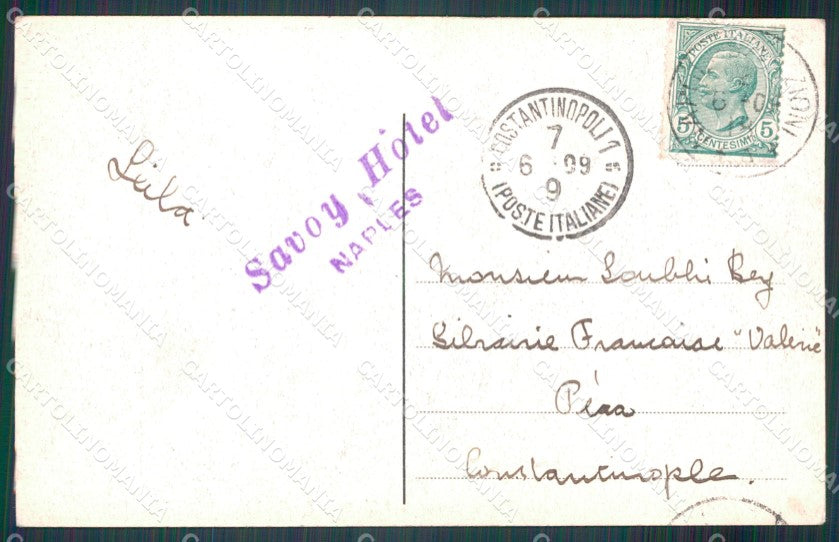 Leila
Savoy Hotel
NAPLES
COSTANTINOPOLI 1
7
6 09
9
(POSTE ITALIANE)
POSTE ITALIANE
5 5
CENTESIMI
Monsieur Soubhi Bey
Librairie Francaise "Valerie"
Péra
Constantinople.
CARTOLINOMANIA